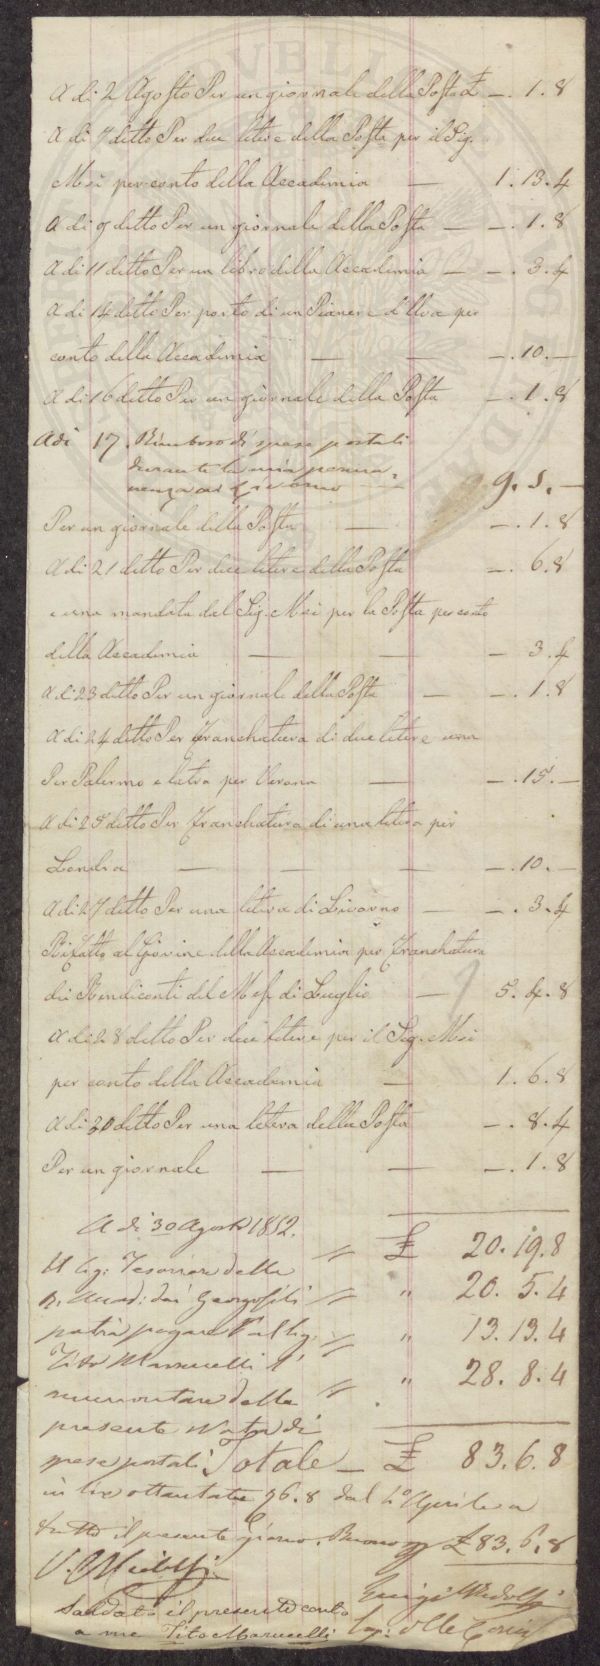 A di 2 Agosto Per un giornale della Posta £ —. 1. 8
A di 7 ditto Per due letere della Posta per il Sig.
Mei per conto della Accademia — 1. 13. 4
A di 9 ditto Per un giornale della Posta — —. 1. 8
A di 11 ditto Per un libro della Accademia — —. 3. 4
A di 14 ditto Per porto di un Paniere d'Uva per
conto della Accademia — — —. 10. —
A di 16 ditto Per un giornale della Posta —. 1. 8
Adi 17. Rimborso di spese postali
durante la mia perma-
nenza — 9. 5. —
Per un giornale della Posta — —. 1. 8
A di 21 ditto Per due letere della Posta —. 6. 8
e una mandata dal Sig. Mei per la Posta per conto
della Accademia — — — 3. 4
A di 23 ditto Per un giornale della Posta — —. 1. 8
A di 24 ditto Per Franchatura di due letere una
Per Palermo e latra per Verona — —. 15. —
A di 25 ditto Per Franchatura di una letera per
Londra — — — —. 10. —
A di 27 ditto Per una letera di Livorno — —. 3. 4
Rifatto al Giovine della Accademia per Franchatura
dei Rendiconti del Mese di Luglio — 5. 4. 8
A di 28 ditto Per due letere per il Sig. Mei
per conto della Accademia — 1. 6. 8
A di 30 ditto Per una letera della Posta —. 8. 4
Per un giornale — — —. 1. 8
A di 30 Agosto 1852. £ 20. 19. 8
Il Sig: Tesoriere della " 20. 5. 4
R. Accad: dei Georgofili " 13. 13. 4
potrà pagare al Sig:
Tito Marucelli l' " 28. 8. 4
ammontare della
presente Nota di
spese postali Totale — £ 83. 6. 8
in lire ottantatre 6. 8 dal 1° Aprile a
tutto il presente giorno. Buono per £ 83. 6. 8
V. Ridolfi
Luigi Ridolfi
Saldato il presente conto
a me Tito Marucelli